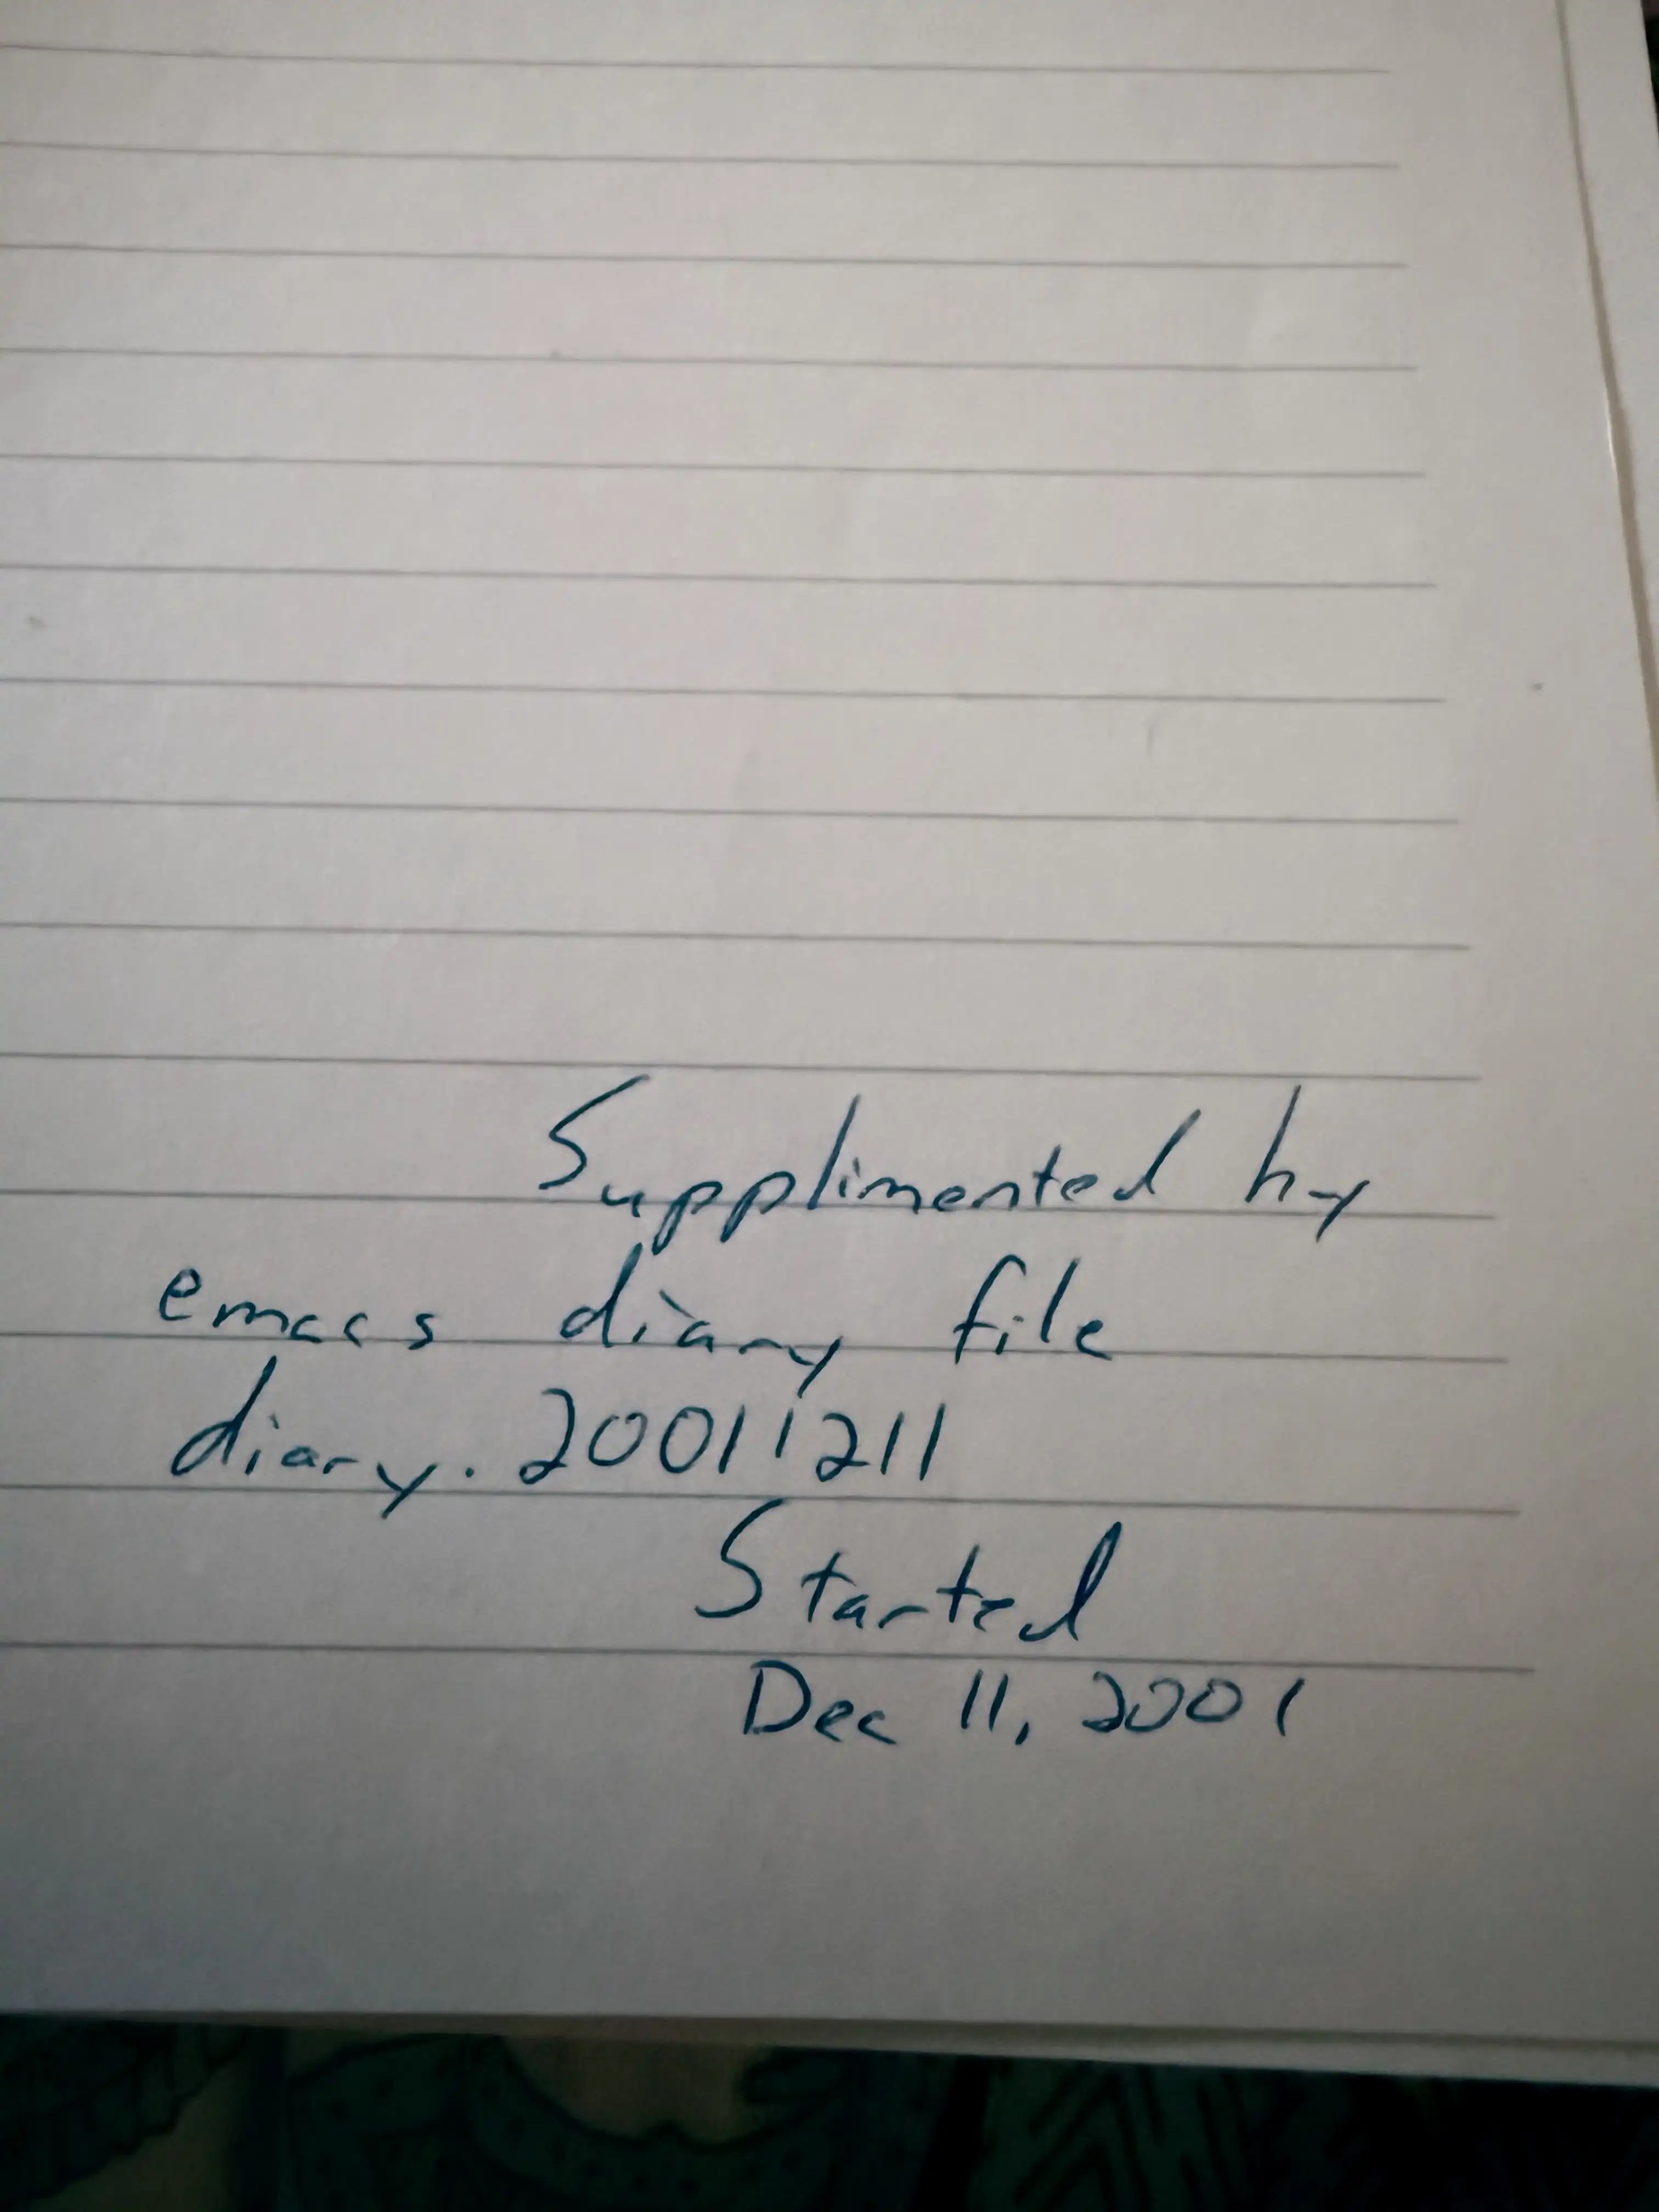 Supplimented by
emacs diary file
diary.20011211
Started
Dec 11, 2001